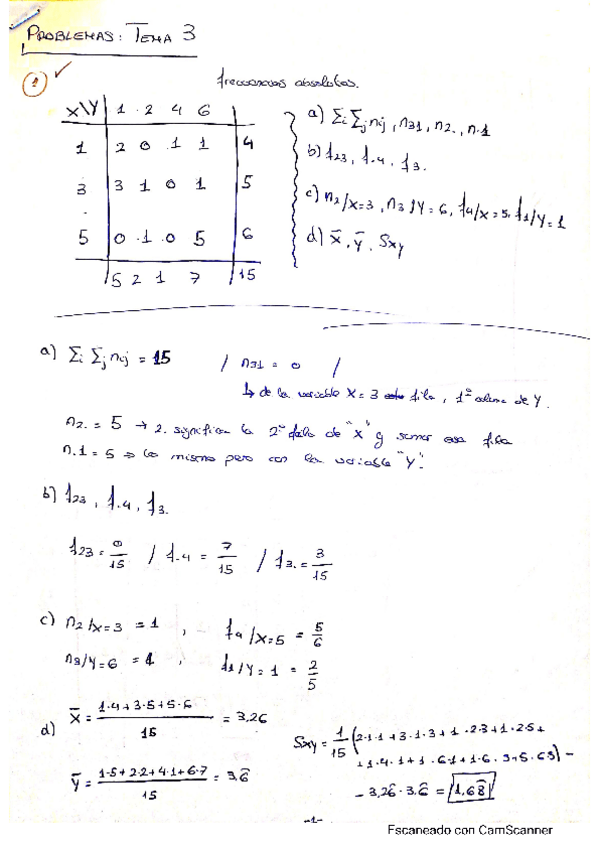 PROBLEMAS: TEMA 3
1
frecuencias absolutas.
X\Y 1 2 4 6
1 2 0 1 1 4
3 3 1 0 1 5
5 0 1 0 5 6
5 2 1 7 15
a) Σi Σj nij, n31, n2., n.1
b) f23, f.4, f3.
c) n2/x=3, n3/Y=6, f4/x=5, f1/Y=1
d) X̄, Ȳ, Sxy
a) Σi Σj nij = 15 / n31 = 0 /
↳ de la variable X=3 fila, 1º columna de Y.
n2. = 5 → 2. significa la 2º fila de "X" y sumar esa fila
n.1 = 5 ⇒ lo mismo pero con la variable "Y".
b) f23, f.4, f3.
f23 = 0/15 / f.4 = 7/15 / f3. = 3/15
c) n2/x=3 = 1 , f4/x=5 = 5/6
n3/Y=6 = 1 , f1/Y=1 = 2/5
d) X̄ = (1·4+3·5+5·6)/15 = 3,26
Sxy = 1/15 (2·1·1+3·1·3+1·2·3+1·2·5+
+1·4·1+1·6·1+1·6·3+5·6·5) -
- 3,26·3,6̂ = 1,68̂
Ȳ = (1·5+2·2+4·1+6·7)/15 = 3,6̂
-1-
Escaneado con CamScanner